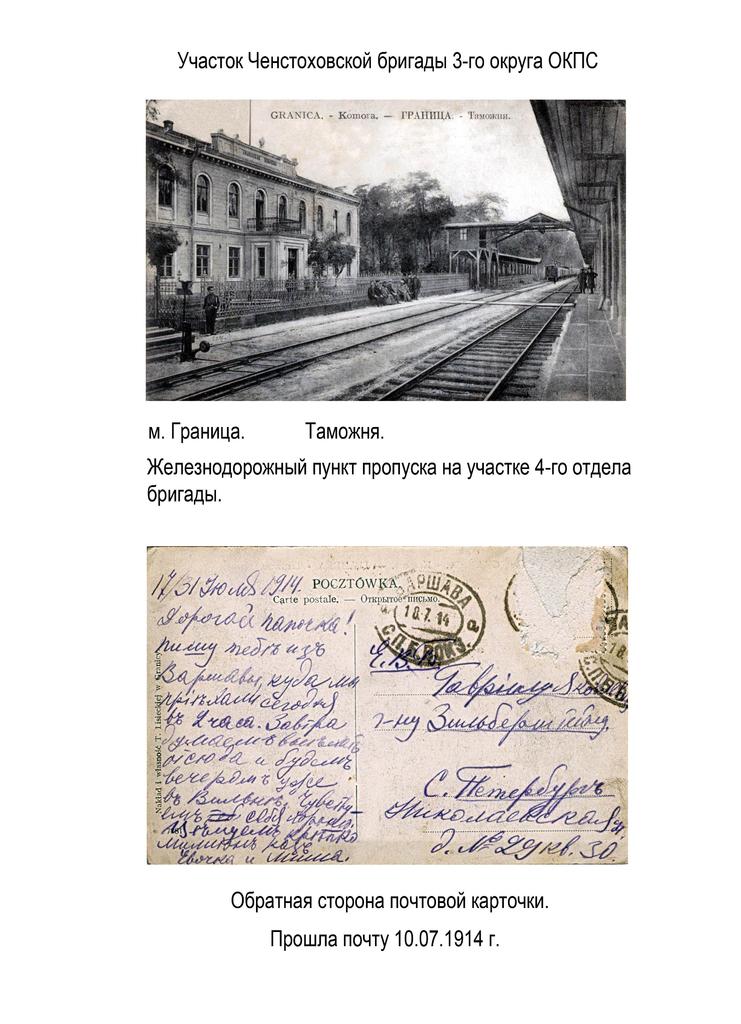 Участок Ченстоховской бригады 3-го округа ОКПС
GRANICA. - Komora. — ГРАНИЦА. - Таможня.
м. Граница. Таможня.
Железнодорожный пункт пропуска на участке 4-го отдела
бригады.
17/31 Юля 1914.
POCZTÓWKA.
Carte postale. — Открытое письмо.
ВАРШАВА
18.7.14
Дорогой папочка!
пишу тебѣ изъ
Варшавы, куда мы
пріѣхали сегодня
въ 2 часа. Завтра
думаемъ выѣхать
отсюда и будемъ
вечеромъ уже
въ Вильнѣ. Чувству-
емъ себя хорошо.
цѣлуемъ крѣпко
милліонъ разъ
Евочка и Миша.
Nakład i własność T. Lisieckiej w Granicy
Е. В.
Гавріилу
г-ну Зильберштейну.
С. Петербургъ
Николаевская
д. № 29 кв. 30.
Обратная сторона почтовой карточки.
Прошла почту 10.07.1914 г.